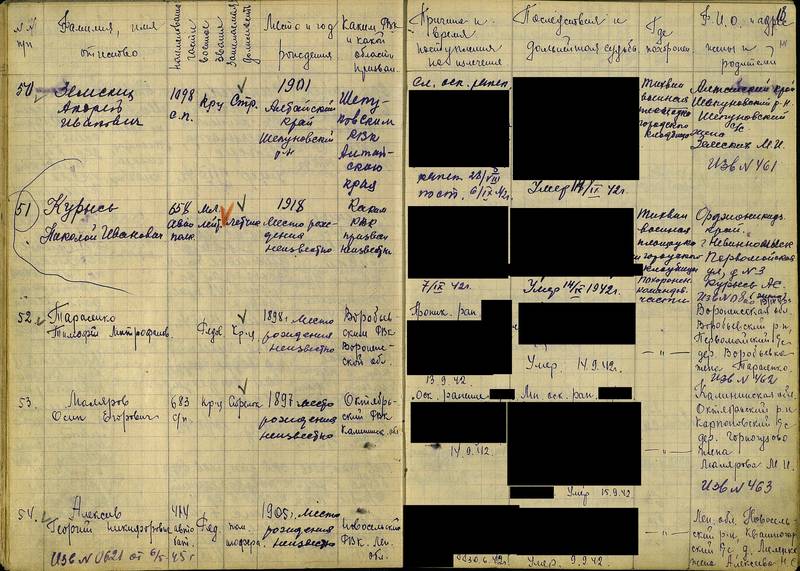 Фамилия, имя
отчество
Место и год
рождения
Каким РВК
и какой
области
призван
Причина и
время
поступления
на излечение
Последствия и
дальнейшая судьба.
Где
похоронен
Ф.И.О. и адрес
жены и
родителей
Земских
Андрей
Иванович
1098
с.п.
Кр-ц
Стр.
1901
Алтайский
край
Шепуновский
р-н
Шепу-
новским
РВК
Алтай-
ского
края
Сл. оск. ранен.
ранен 28/VIII
пост. 6/IX 42г.
Умер 14/IX 42г.
Тихвин
военная
площадка
городского
кладбища
Алтайский край
Шепуновский р-н
Шепуновский
с/с
жена
Земских М.И.
Изв N 461
51
Курысь
Николай Иванович
658
авиа
полк
Мл.
лейт.
летчик
1918
Место рож-
дения
неизвестно
Каким
РВК
призван
неизвестно
7/IX 42г.
Умер 14/IX 1942г.
Тихвин
военная
площадка
городская
кладбища
Похоронен
командов.
части
Орджоникидз.
край.
г. Невинномысск
Первомайская
ул. д N 3
Курысь А.С.
52
Тараненко
Тимофей Митрофанов.
Рядов
1898г. Место
рождения
неизвестно
Воробьев-
ским РВК
Воронеж-
ской обл.
Проник. ран.
13.9.42.
Умер 14.9.42г.
— " —
Воронежская обл.
Воробьевский р-н,
Первомайский с/с
дер. Воробьевка
жена Тараненко.
Изв N 462
53.
Маляров
Осип Егорович
683
с/п.
Кр-ц
Стрелок
1897 место
рождения
неизвестно
Октябрь-
ский РВК
Калинин. обл
Оск. ранение
14.9.42.
Мн. оск. ран.
Умер 15.9.42
— " —
Калининская обл.
Октябрьский р-н
жена
Малярова М.И.
Изв N 463
54.
Алексеев
Георгий Никифорович
Изв N 0621 от 6/I-45г
414
авто
бат.
Ряд.
пом.
шофера.
1905г. Место
рождения
неизвестно
Новосельский
РВК. Лен.
обл.
30.6.42г.
Умер. 9.9.42г.
— " —
Лен. обл. Новосель-
ский р-н,
жена Алексеева Н.С